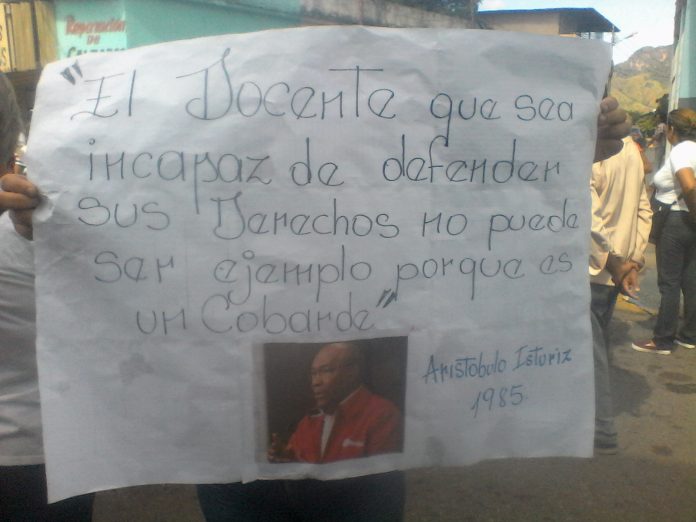 Reparación
DE
CALZADOS
"El Docente que sea
incapaz de defender
sus Derechos no puede
ser ejemplo porque es
un Cobarde"
Aristobulo Isturiz
1985